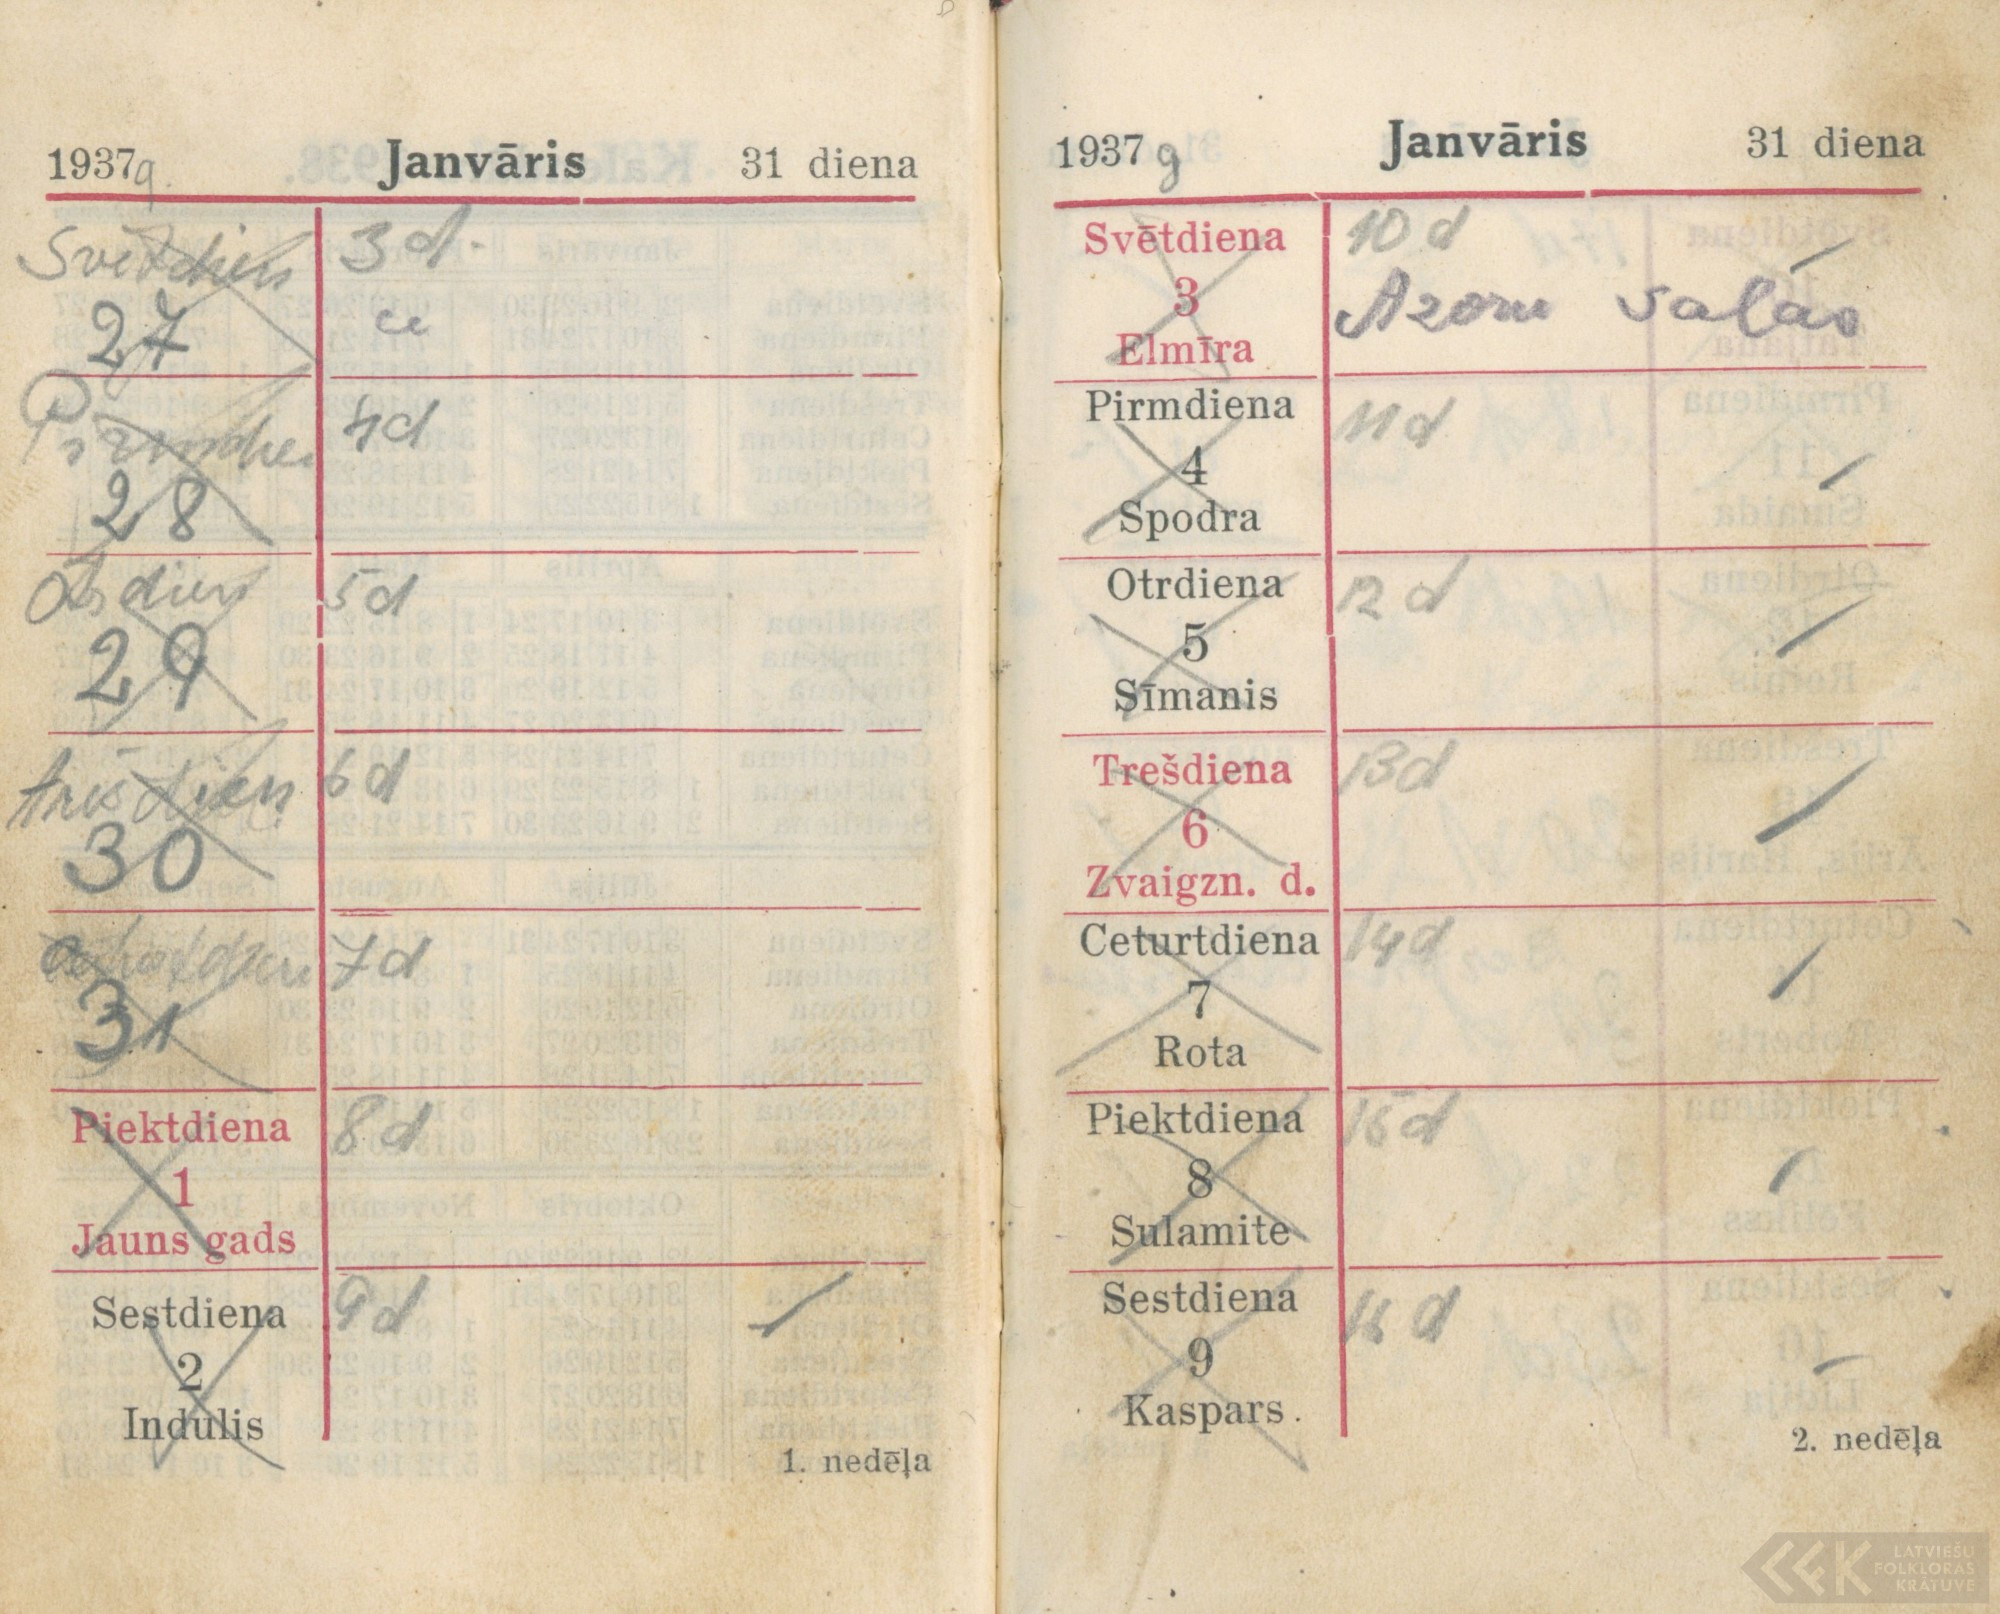 1937 g. Janvāris 31 diena
Svētdien 3 d.
27
28 4 d
dien 5 d
29
tresdien 6 d
30
7 d
31
Piektdiena 8 d
1
Jauns gads
Sestdiena 9 d
2
Indulis
1. nedēļa
1937 g Janvāris 31 diena
Svētdiena 10 d
3 Azoru salās
Elmīra
Pirmdiena 11 d
4
Spodra
Otrdiena 12 d
5
Sīmanis
Trešdiena 13 d
6
Zvaigzn. d.
Ceturtdiena 14 d
7
Rota
Piektdiena 15 d
8
Sulamite
Sestdiena 16 d
9
Kaspars.
2. nedēļa
LATVIEŠU
FOLKLORAS
KRĀTUVE